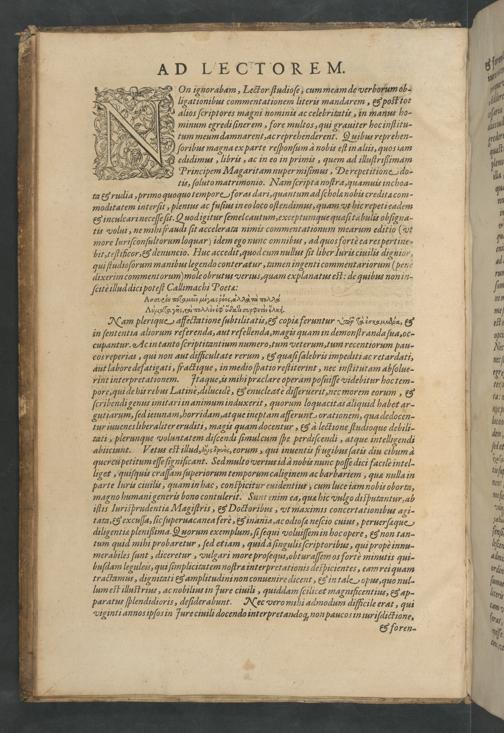 AD LECTOREM.
NOn ignorabam, Lector studiose, cum meam de verborum ob-
ligationibus commentationem literis mandarem, & post tot
alios scriptores magni nominis ac celebritatis, in manus ho-
minum egredi sinerem, fore multos, qui graviter hoc institu-
tum meum damnarent, ac reprehenderent. Quibus reprehen-
soribus magna ex parte responsum à nobis est in aliis, quos iam
edidimus, libris, ac in eo in primis, quem ad illustrissimam
Principem Magaritam nuper misimus, De repetitione do-
tis, soluto matrimonio. Nam scripta nostra, quamuis inchoa-
ta & rudia, primo quoquo tempore foras dari, quantum ad schola nobis credita com-
moditatem intersit, plenius ac fusius in eo loco ostendimus, quam ut hic repeti eadem
& inculcari necesse sit. Quod igitur semel cautum, exceptumque quasi tabulis obsigna-
tis volui, ne mihi fraudi sit accelerata nimis commentationum mearum editio (ut
more Iurisconsultorum loquar) idem ego nunc omnibus, ad quos forte ea res pertine-
bit, testificor, & denuncio. Huc accedit, quod cum nullus sit liber Iuris ciuilis dignior,
qui studiosorum manibus legendo conteratur, tum en ingenti commentariorum (pene
dixerim commentorum) mole obrutus verius, quam explanatus est: de quibus non in-
scitè illud dici potest Callimachi Poetæ:
Nam plerique, affectatione subtilitatis, & copia feruntur &
in sententia aliorum referenda, aut refellenda, magis quam in demonstranda sua, oc-
cupantur. Ac in tanto scriptitantium numero, tum veterum, tum recentiorum pau-
cos reperias, qui non aut difficultate rerum, & quasi salebris impediti ac retardati,
aut labore defatigati, fractique, in medio spatio restiterint, nec institutam absolue-
rint interpretationem. Itaque, is mihi praclare operam posuisse videbitur hoc tem-
pore, qui de his rebus Latinè, dilucidè, & enucleatè disseruerit, nec morem eorum, &
scribendi genus imitari in animum induxerit, quorum loquacitas aliquid habet ar-
gutiarum, sed ieiunam, horridam, atque ineptam afferunt orationem, qua dedocen-
tur iuuenes liberaliter eruditi, magis quam docentur, & à lectione studioque debili-
tati, plerunque voluntatem discendi simul cum spe perdiscendi, atque intelligendi
abiiciunt. Vetus est illud, eorum, qui inuentis frugibus satis diu cibum à
quercu petitum esse significant. Sed multo verius id à nobis nunc posse dici facile intel-
liget, quisquis crassam superiorum temporum caliginem ac barbariem, qua nulla in
parte Iuris ciuilis, quam in hac, conspicitur euidentius, cum luce iam nobis oborta,
magno humani generis bono contulerit. Sunt enim ea, qua hic vulgo disputantur, ab
istis Iurisprudentia Magistris, & Doctoribus, vt maximis concertationibus agi-
tata, & excussa, sic superuacanea ferè, & inania, ac odiosa nescio cuius, peruersaque
diligentia plenissima. Quorum exemplum, si sequi voluissem in hoc opere, & non tan-
tum quid mihi probaretur, sed etiam, quid à singulis scriptoribus, qui propè innu-
merabiles sunt, diceretur, vulgari more prosequi, obturassem os fortè minutis qui-
busdam leguleis, qui simplicitatem nostra interpretationis despicientes, eam rei quam
tractamus, dignitati & amplitudini non conuenire dicent, & in tale opus, quo nul-
lum est illustrius, ac nobilius in Iure ciuili, quiddam scilicet magnificentius, & ap-
paratus splendidioris, desiderabunt. Nec vero mihi admodum difficile erat, qui
viginti annos ipsos in Iure ciuili docendo interpretandoq, non paucos in iurisdictione,
& foren-